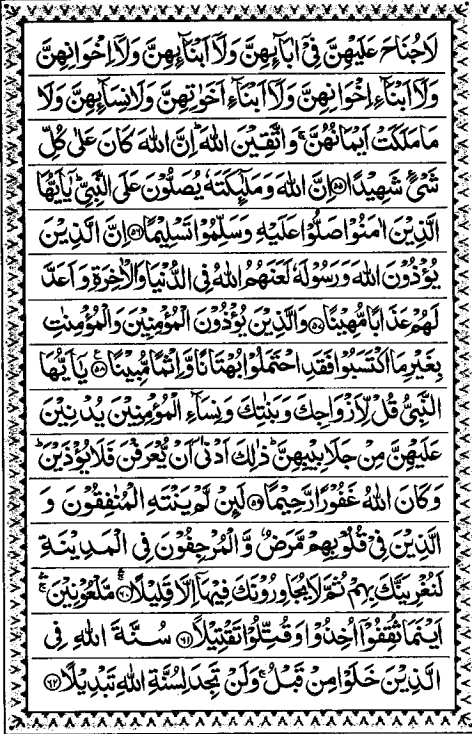 لَا جُنَاحَ عَلَيْهِنَّ فِيْٓ اٰبَآئِهِنَّ وَلَآ اَبْنَآئِهِنَّ وَلَآ اِخْوَانِهِنَّ
وَلَآ اَبْنَآءِ اِخْوَانِهِنَّ وَلَآ اَبْنَآءِ اَخَوٰتِهِنَّ وَلَا نِسَآئِهِنَّ وَلَا
مَا مَلَكَتْ اَيْمَانُهُنَّ ۚ وَاتَّقِيْنَ اللّٰهَ ؕ اِنَّ اللّٰهَ كَانَ عَلٰى كُلِّ
شَيْءٍ شَهِيْدًا ﴿۵۵﴾ اِنَّ اللّٰهَ وَمَلٰٓئِكَتَهٗ يُصَلُّوْنَ عَلَى النَّبِيِّ ؕ يٰٓاَيُّهَا
الَّذِيْنَ اٰمَنُوْا صَلُّوْا عَلَيْهِ وَسَلِّمُوْا تَسْلِيْمًا ﴿۵۶﴾ اِنَّ الَّذِيْنَ
يُؤْذُوْنَ اللّٰهَ وَرَسُوْلَهٗ لَعَنَهُمُ اللّٰهُ فِي الدُّنْيَا وَالْاٰخِرَةِ وَاَعَدَّ
لَهُمْ عَذَابًا مُّهِيْنًا ﴿۵۷﴾ وَالَّذِيْنَ يُؤْذُوْنَ الْمُؤْمِنِيْنَ وَالْمُؤْمِنٰتِ
بِغَيْرِ مَا اكْتَسَبُوْا فَقَدِ احْتَمَلُوْا بُهْتَانًا وَّاِثْمًا مُّبِيْنًا ﴿۵۸﴾ يٰٓاَيُّهَا
النَّبِيُّ قُلْ لِّاَزْوَاجِكَ وَبَنٰتِكَ وَنِسَآءِ الْمُؤْمِنِيْنَ يُدْنِيْنَ
عَلَيْهِنَّ مِنْ جَلَابِيْبِهِنَّ ؕ ذٰلِكَ اَدْنٰٓى اَنْ يُّعْرَفْنَ فَلَا يُؤْذَيْنَ ؕ
وَكَانَ اللّٰهُ غَفُوْرًا رَّحِيْمًا ﴿۵۹﴾ لَئِنْ لَّمْ يَنْتَهِ الْمُنٰفِقُوْنَ وَ
الَّذِيْنَ فِيْ قُلُوْبِهِمْ مَّرَضٌ وَّالْمُرْجِفُوْنَ فِي الْمَدِيْنَةِ
لَنُغْرِيَنَّكَ بِهِمْ ثُمَّ لَا يُجَاوِرُوْنَكَ فِيْهَآ اِلَّا قَلِيْلًا ﴿۶۰﴾ مَّلْعُوْنِيْنَ ۛۚ
اَيْنَمَا ثُقِفُوْٓا اُخِذُوْا وَقُتِّلُوْا تَقْتِيْلًا ﴿۶۱﴾ سُنَّةَ اللّٰهِ فِي
الَّذِيْنَ خَلَوْا مِنْ قَبْلُ ۚ وَلَنْ تَجِدَ لِسُنَّةِ اللّٰهِ تَبْدِيْلًا ﴿۶۲﴾